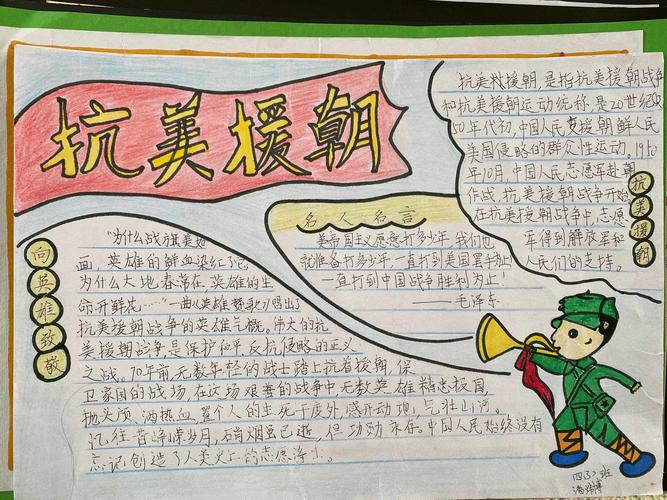 抗美援朝
抗美援朝,是指抗美援朝战争
和抗美援朝运动统称,是20世纪
50年代初,中国人民支援朝鲜人民
美国侵略的群众性运动。1950
年10月,中国人民志愿军赴朝
作战,抗美援朝战争开始
在抗美援朝战争中,志愿
军得到解放军和
人民们的支持。
抗美援朝
名人名言
美帝国主义愿意打多少年,我们也
就准备打多少年,一直打到美国罢手为止
一直打到中国战争胜利为止!
——毛泽东
向英雄致敬
"为什么战旗美如
画,英雄的鲜血染红了它
为什么大地春常在,英雄的生
命开鲜花……"一曲《英雄赞歌》唱出了
抗美援朝战争的英雄气概。伟大的抗
美援朝战争,是保护和平、反抗侵略的正义
之战。70年前,无数年轻的战士踏上抗着援朝、保
卫家国的战场,在这场艰巨的战争中无数英雄精忠报国、
抛头颅、洒热血,置个人的生死于度外,感天动地,气壮山河。
记往昔峥嵘岁月,硝烟虽已逝,但功勋永存。中国人民始终没有
忘记创造了人类
四3)班